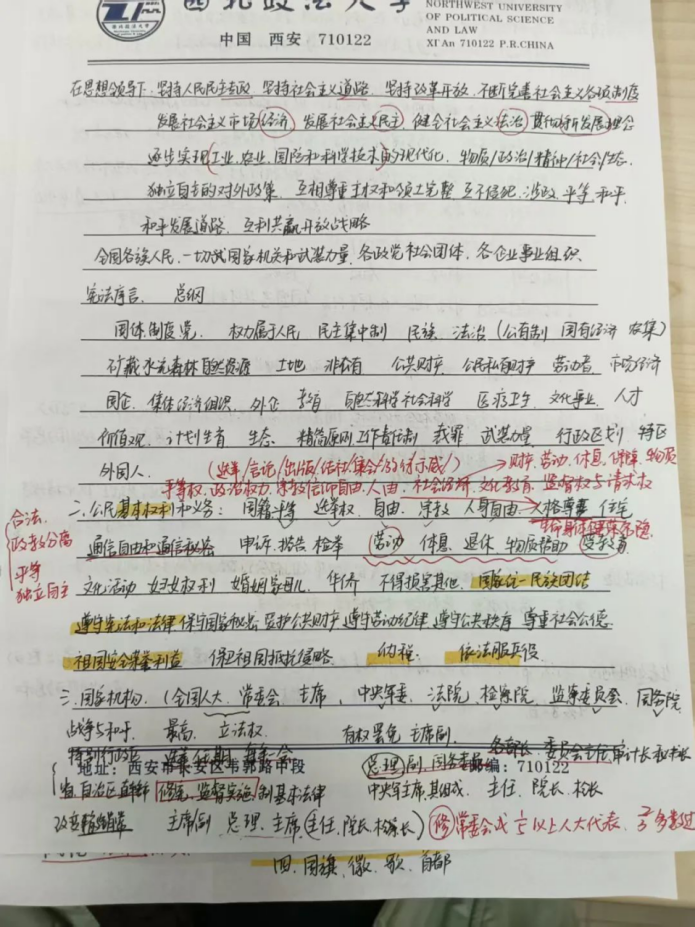 西北政法大学
NORTHWEST UNIVERSITY
OF POLITICAL SCIENCE
AND LAW
中国 西安 710122
XI'An 710122 P.R.CHINA
在思想领导下：坚持人民民主专政 坚持社会主义道路 坚持改革开放 不断完善社会主义各项制度
发展社会主义市场经济 发展社会主义民主 健全社会主义法治 贯彻新发展理念
逐步实现(工业、农业、国防和科学技术)的现代化 物质/政治/精神/社会/生态
独立自主的对外政策 互相尊重主权和领土完整 互不侵犯 涉政 平等 和平
和平发展道路 互利共赢开放战略
全国各族人民 一切国家机关和武装力量 各政党社会团体 各企业事业组织
宪法序言 总纲
国体制度党 权力属于人民 民主集中制 民族 法治 (公有制 国有经济 农集)
矿藏水流森林自然资源 土地 非公有 公共财产 公民私有财产 劳动者 市场经济
国企 集体经济组织 外企 教育 自然科学社会科学 医疗卫生 文化事业 人才
价值观 计划生育 生态 精简原则工作责任制 武装力量 行政区划 特区
外国人 (选举/言论/出版/结社/集会/游行示威/) → 财产、劳动、休息、保障、物质
平等权、政治权力、宗教信仰自由、人由、社会经济、文化教育、监督权与请求权
合法
政教分离
平等
独立自主
二、公民基本权利和义务： 国籍平等 选举权 自由 宗教 人身自由 → 人格尊严 住宅
通信自由和通信秘密 申诉、控告、检举 劳动 休息 退休 物质帮助 受教育
文化活动 妇女权利 婚姻家母儿 华侨 不得损害其他 国家统一民族团结
遵守宪法和法律 保守国家秘密 爱护公共财产 遵守劳动纪律 遵守公共秩序 尊重社会公德
祖国安全荣誉利益 保卫祖国抵抗侵略 纳税 依法服兵役
三、国家机构：(全国人大 常委会 主席 中央军委 法院 检察院 监察委员会 国务院
战争与和平 最高 立法权 有权罢免 主席副
特别行政区 委员会主任审计长秘书长
地址：西安市长安区韦郭路中段
总理副 国务委员
邮编：710122
省、自治区直辖市 修宪、监督实施 制基本法律 中央军主席其组成 主任 院长 检长
主席副 总理 主席(主任、院长检察长) 修 常委会或1/5以上人大代表 2/3多数过
四、国旗、徽、歌、首都